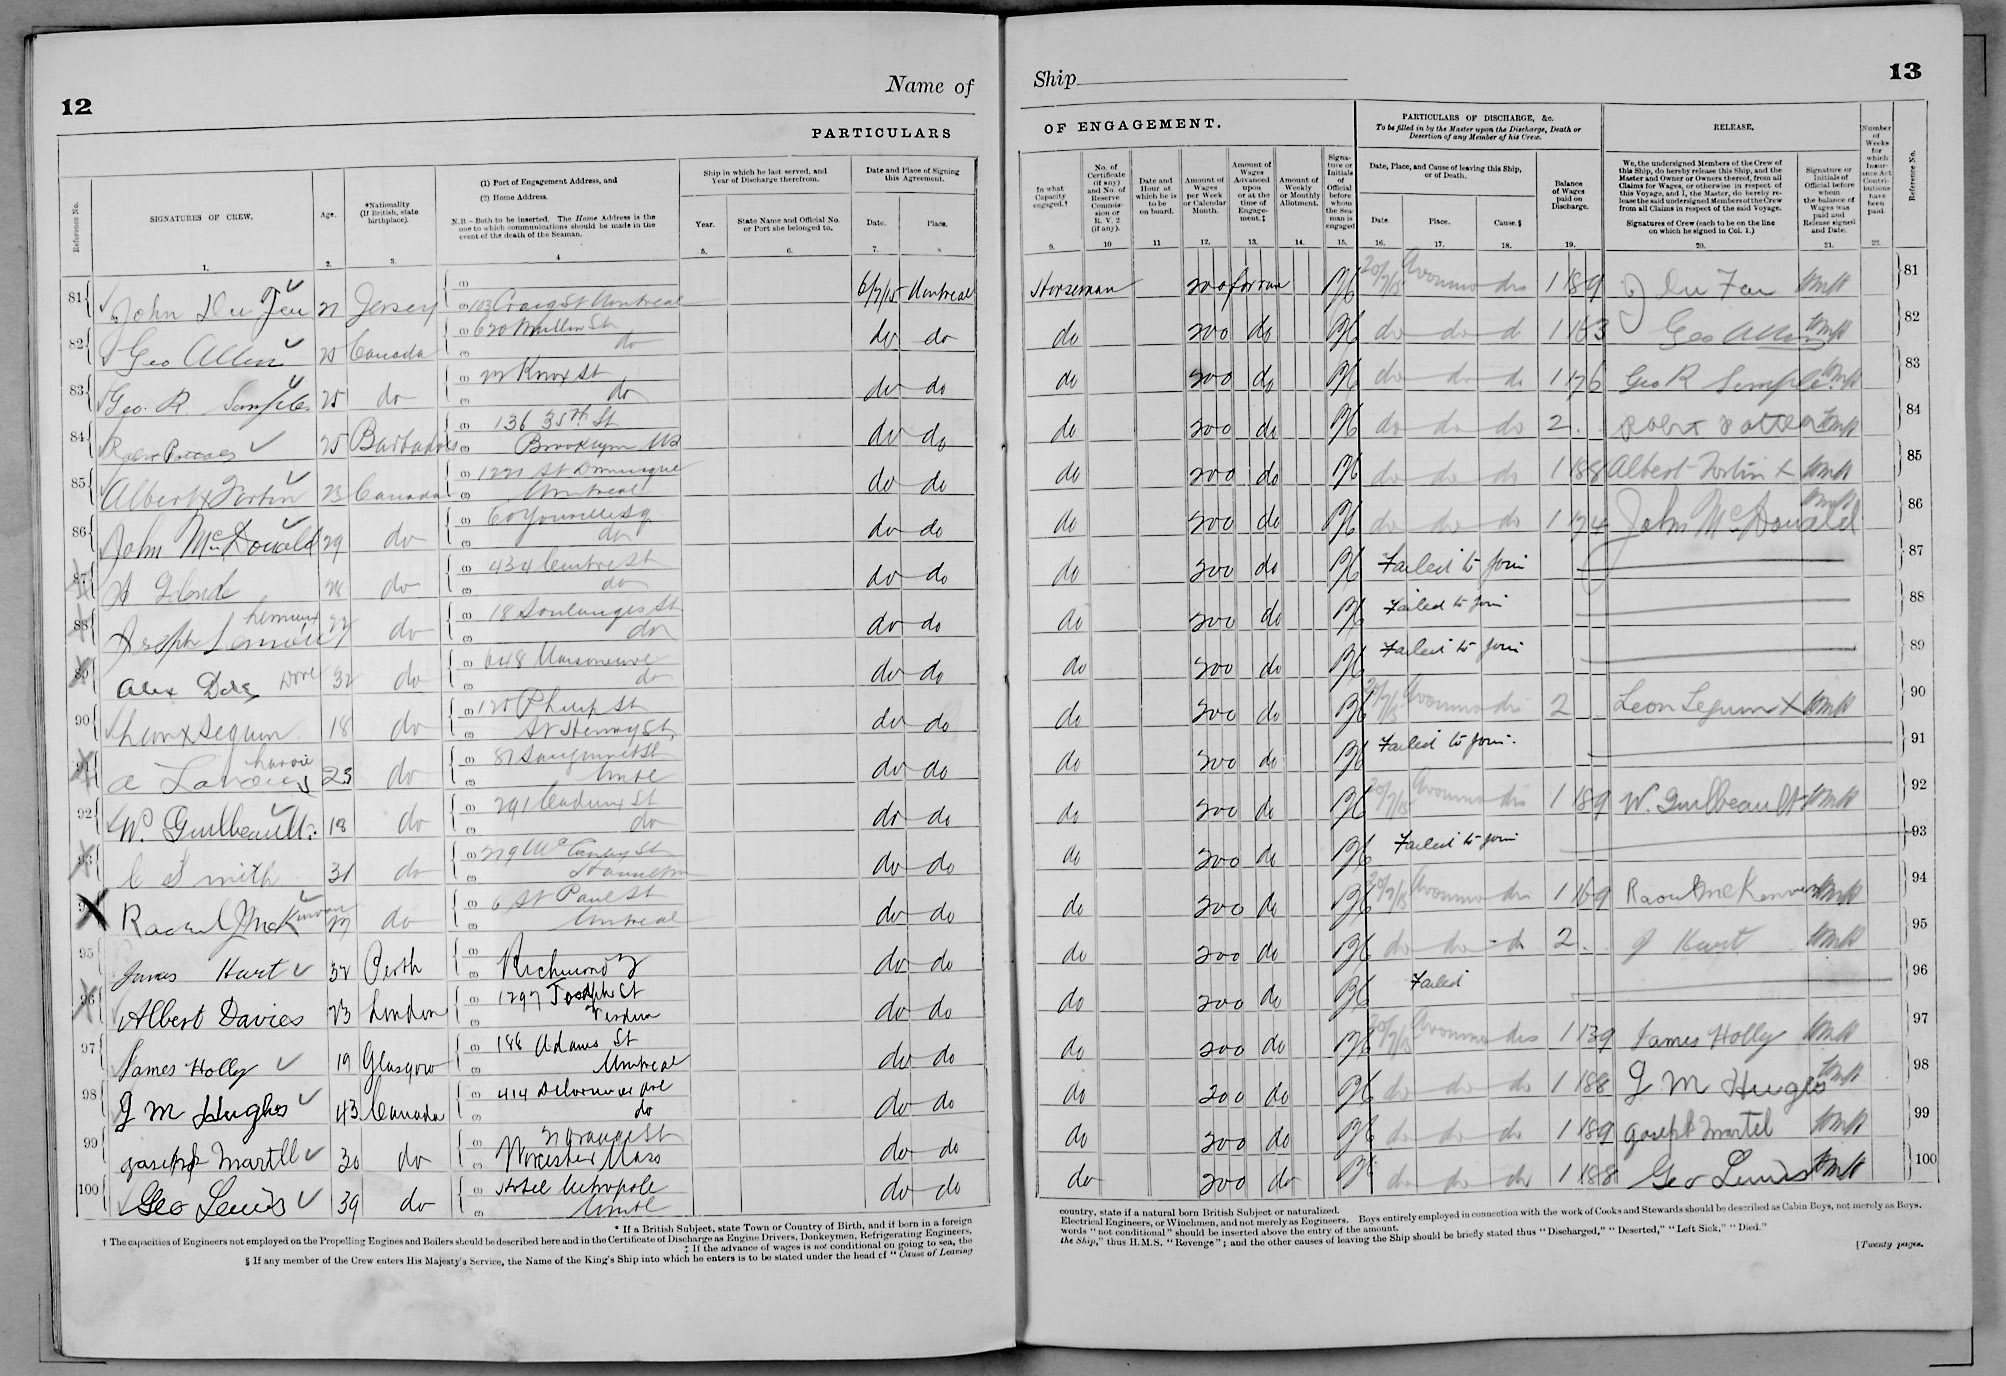 12
Name of
PARTICULARS
Reference No.
SIGNATURES OF CREW.
Age.
*Nationality (If British, state birthplace).
(1) Port of Engagement Address, and
(2) Home Address.
N.B.—Both to be inserted. The Home Address is the one to which communications should be made in the event of the death of the Seaman.
Ship in which he last served, and Year of Discharge therefrom.
Year.
State Name and Official No. or Port she belonged to.
Date and Place of Signing this Agreement.
Date.
Place.
1. 2. 3. 4 5. 6. 7. 8
81 John Du Feu 21 Jersey 113 Craig St Montreal 6/7/15 Montreal
82 Geo Allen 25 Canada 620 Mullin St do do do
83 Geo. R Semple 25 do 22 Knox St do do do
84 25 Barbados 136 35th St Brooklyn US do do
85 Albert x Fortin 23 Canada 1221 St Dominique Montreal do do
86 John McDonald 29 do 60 Youville Sq do do do
87 28 do 434 Centre St do do do
88 Joseph Lemieux 22 do 18 Soulanges St do do do
89 Alex Dore 32 do 648 Maisoneuve do do do
90 Leon x Seguin 18 do 120 Philip St St Henry St do do
91 A 23 do 81 Sanguinet St Mntl do do
92 W. Guilbeault 18 do 291 Cadieux St do do do
93 C Smith 31 do 219 St Hamilton do do
94 Raoul McKinnon 27 do 6 St Paul St Montreal do do
95 James Hart 32 Perth Richmond do do
96 Albert Davies 23 London 1297 Joseph St Verdun do do
97 James Holly 19 Glasgow 188 Adams St Montreal do do
98 J M Hughes 43 Canada 414 Delorimier Ave do do do
99 Joseph Martell 30 do 21 Orange St Worcester Mass do do
100 Geo Lewis 39 do Hotel Metropole Mntl do do
* If a British Subject, state Town or Country of Birth, and if born in a foreign
† The capacities of Engineers not employed on the Propelling Engines and Boilers should be described here and in the Certificate of Discharge as Engine Drivers, Donkeymen, Refrigerating Engineers,
‡ If the advance of wages is not conditional on going to sea, the
§ If any member of the Crew enters His Majesty's Service, the Name of the King's Ship into which he enters is to be stated under the head of "Cause of Leaving
Ship
13
OF ENGAGEMENT.
PARTICULARS OF DISCHARGE, &c.
To be filled in by the Master upon the Discharge, Death or Desertion of any Member of his Crew.
RELEASE,
In what Capacity engaged.†
No. of Certificate (if any) and No. of Reserve Commission or R. V. 2 (if any).
Date and Hour at which he is to be on board.
Amount of Wages per Week or Calendar Month.
Amount of Wages Advanced upon or at the time of Engagement.‡
Amount of Weekly or Monthly Allotment.
Signature or Initials of Official before whom the Seaman is engaged
Date, Place, and Cause of leaving this Ship, or of Death.
Date.
Place.
Cause.§
Balance of Wages paid on Discharge.
We, the undersigned Members of the Crew of this Ship, do hereby release this Ship, and the Master and Owner or Owners thereof, from all Claims for Wages, or otherwise in respect of this Voyage, and I, the Master, do hereby release the said undersigned Members of the Crew from all Claims in respect of the said Voyage.
Signatures of Crew (each to be on the line on which he signed in Col. 1.)
Signature or Initials of Official before whom the balance of Wages was paid and Release signed and Date.
Number of Weeks for which Insurance Act Contributions have been paid.
Reference No.
9. 10 11 12. 13. 14. 15. 16. 17. 18. 19. 20. 21. 22.
Horseman 200 20/7/15 Avonmo dis 1 189 J Du Feu 81
do 200 do do do do 1 183 Geo Allen 82
do 200 do do do do 1 176 Geo R Semple 83
do 200 do do do do 2 84
do 200 do do do do 1 188 Albert Fortin x 85
do 200 do do do do 1 174 John McDonald 86
do 200 do Failed to join 87
do 200 do Failed to join 88
do 200 do Failed to join 89
do 200 do 20/7/15 Avonmo dis 2 Leon Seguin x 90
do 200 do Failed to join. 91
do 200 do 20/7/15 Avonmo dis 1 189 W. Guilbeault 92
do 200 do Failed to join 93
do 200 do 20/7/15 Avonmo dis 1 169 Raoul McKinnon 94
do 200 do do do do 2 J Hart 95
do 200 do Failed 96
do 200 do 20/7/15 Avonmo dis 1 139 James Holly 97
do 200 do do do do 1 188 J M Hughes 98
do 200 do do do do 1 189 Joseph Martel 99
do 200 do do do do 1 188 Geo Lewis 100
country, state if a natural born British Subject or naturalized.
Electrical Engineers, or Winchmen, and not merely as Engineers. Boys entirely employed in connection with the work of Cooks and Stewards should be described as Cabin Boys, not merely as Boys.
words "not conditional" should be inserted above the entry of the amount.
the Ship," thus H.M.S. "Revenge"; and the other causes of leaving the Ship should be briefly stated thus "Discharged," "Deserted," "Left Sick," "Died."
[Twenty pages.